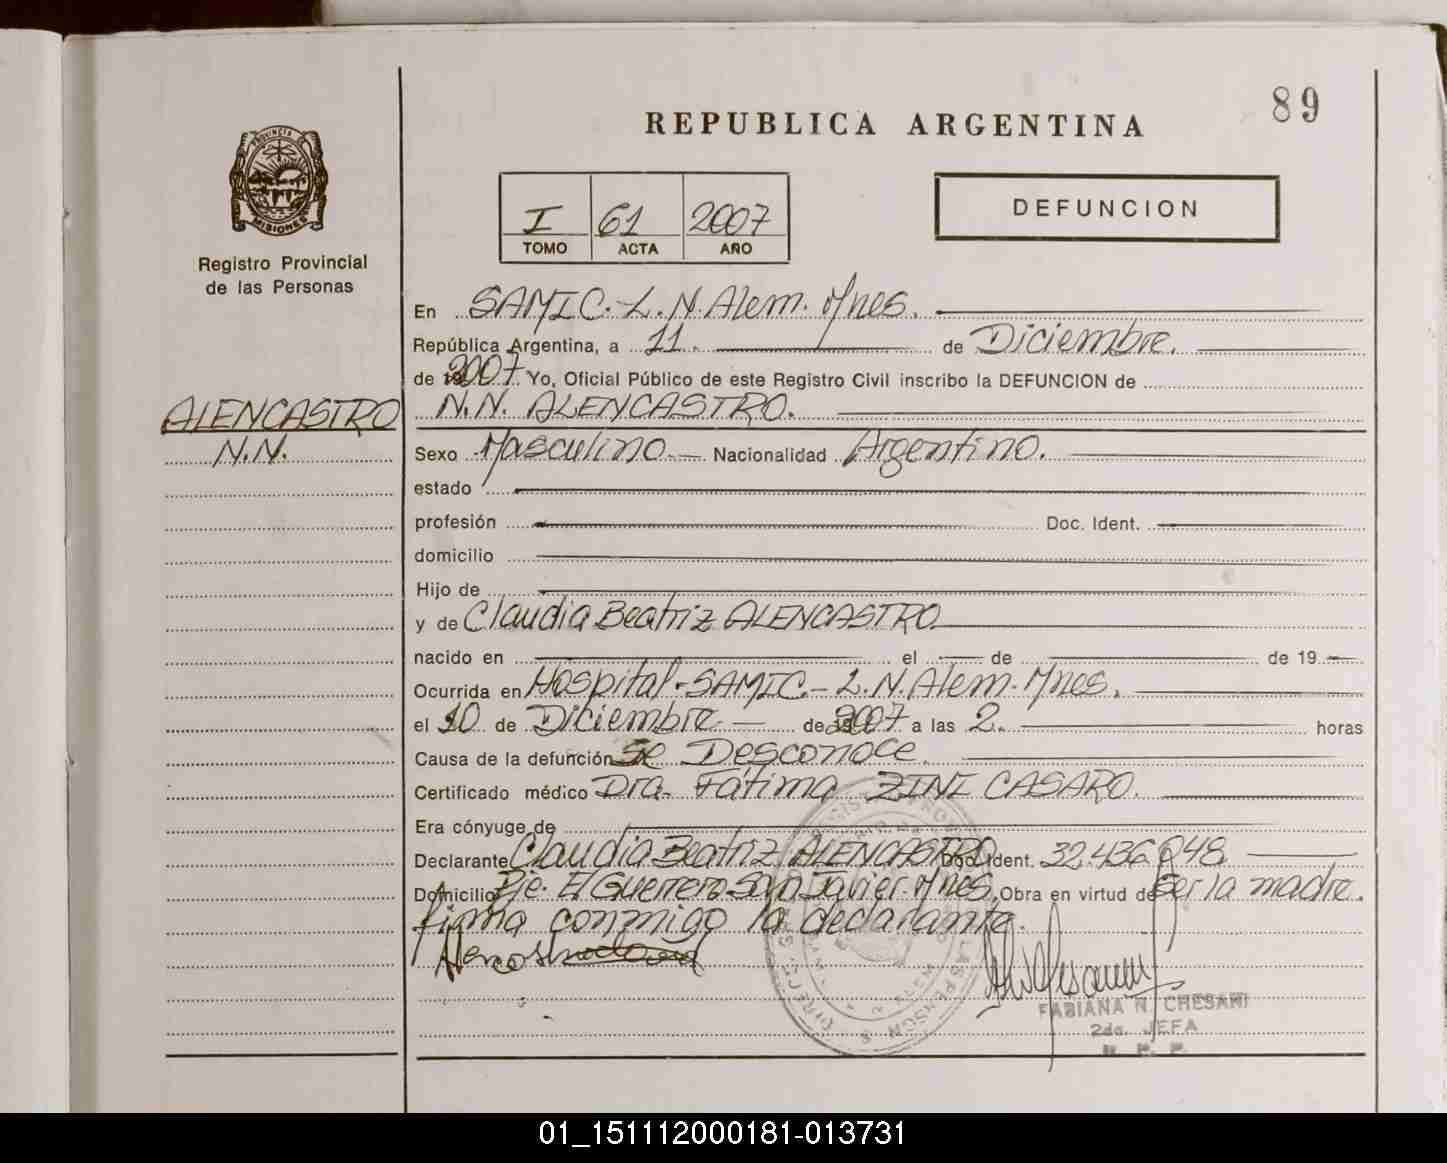 89
REPUBLICA ARGENTINA
PROVINCIA
MISIONES
Registro Provincial
de las Personas
I 61 2007
TOMO ACTA AÑO
DEFUNCION
En SAMIC. L. N. Alem. Mnes.
República Argentina, a 11. de Diciembre.
de 2007 Yo, Oficial Público de este Registro Civil inscribo la DEFUNCION de
ALENCASTRO N.N. ALENCASTRO.
N.N. Sexo Masculino. Nacionalidad Argentino.
estado
profesión Doc. Ident.
domicilio
Hijo de
y de Claudia Beatriz ALENCASTRO
nacido en el de de 19
Ocurrida en Hospital. SAMIC. L. N. Alem. Mnes.
el 10 de Diciembre de 2007 a las 2. horas
Causa de la defunción Se Desconoce.
Certificado médico Dra. Fátima ZINI CASARO.
Era cónyuge de
Declarante Claudia Beatriz ALENCASTRO Doc. Ident. 32.436.048.
Domicilio Pje. El Guerrero. San Javier. Mnes. Obra en virtud de Ser la madre.
firma conmigo la declarante.
FABIANA N. CHESANI
2da. JEFA
R. P. P.
01_151112000181-013731